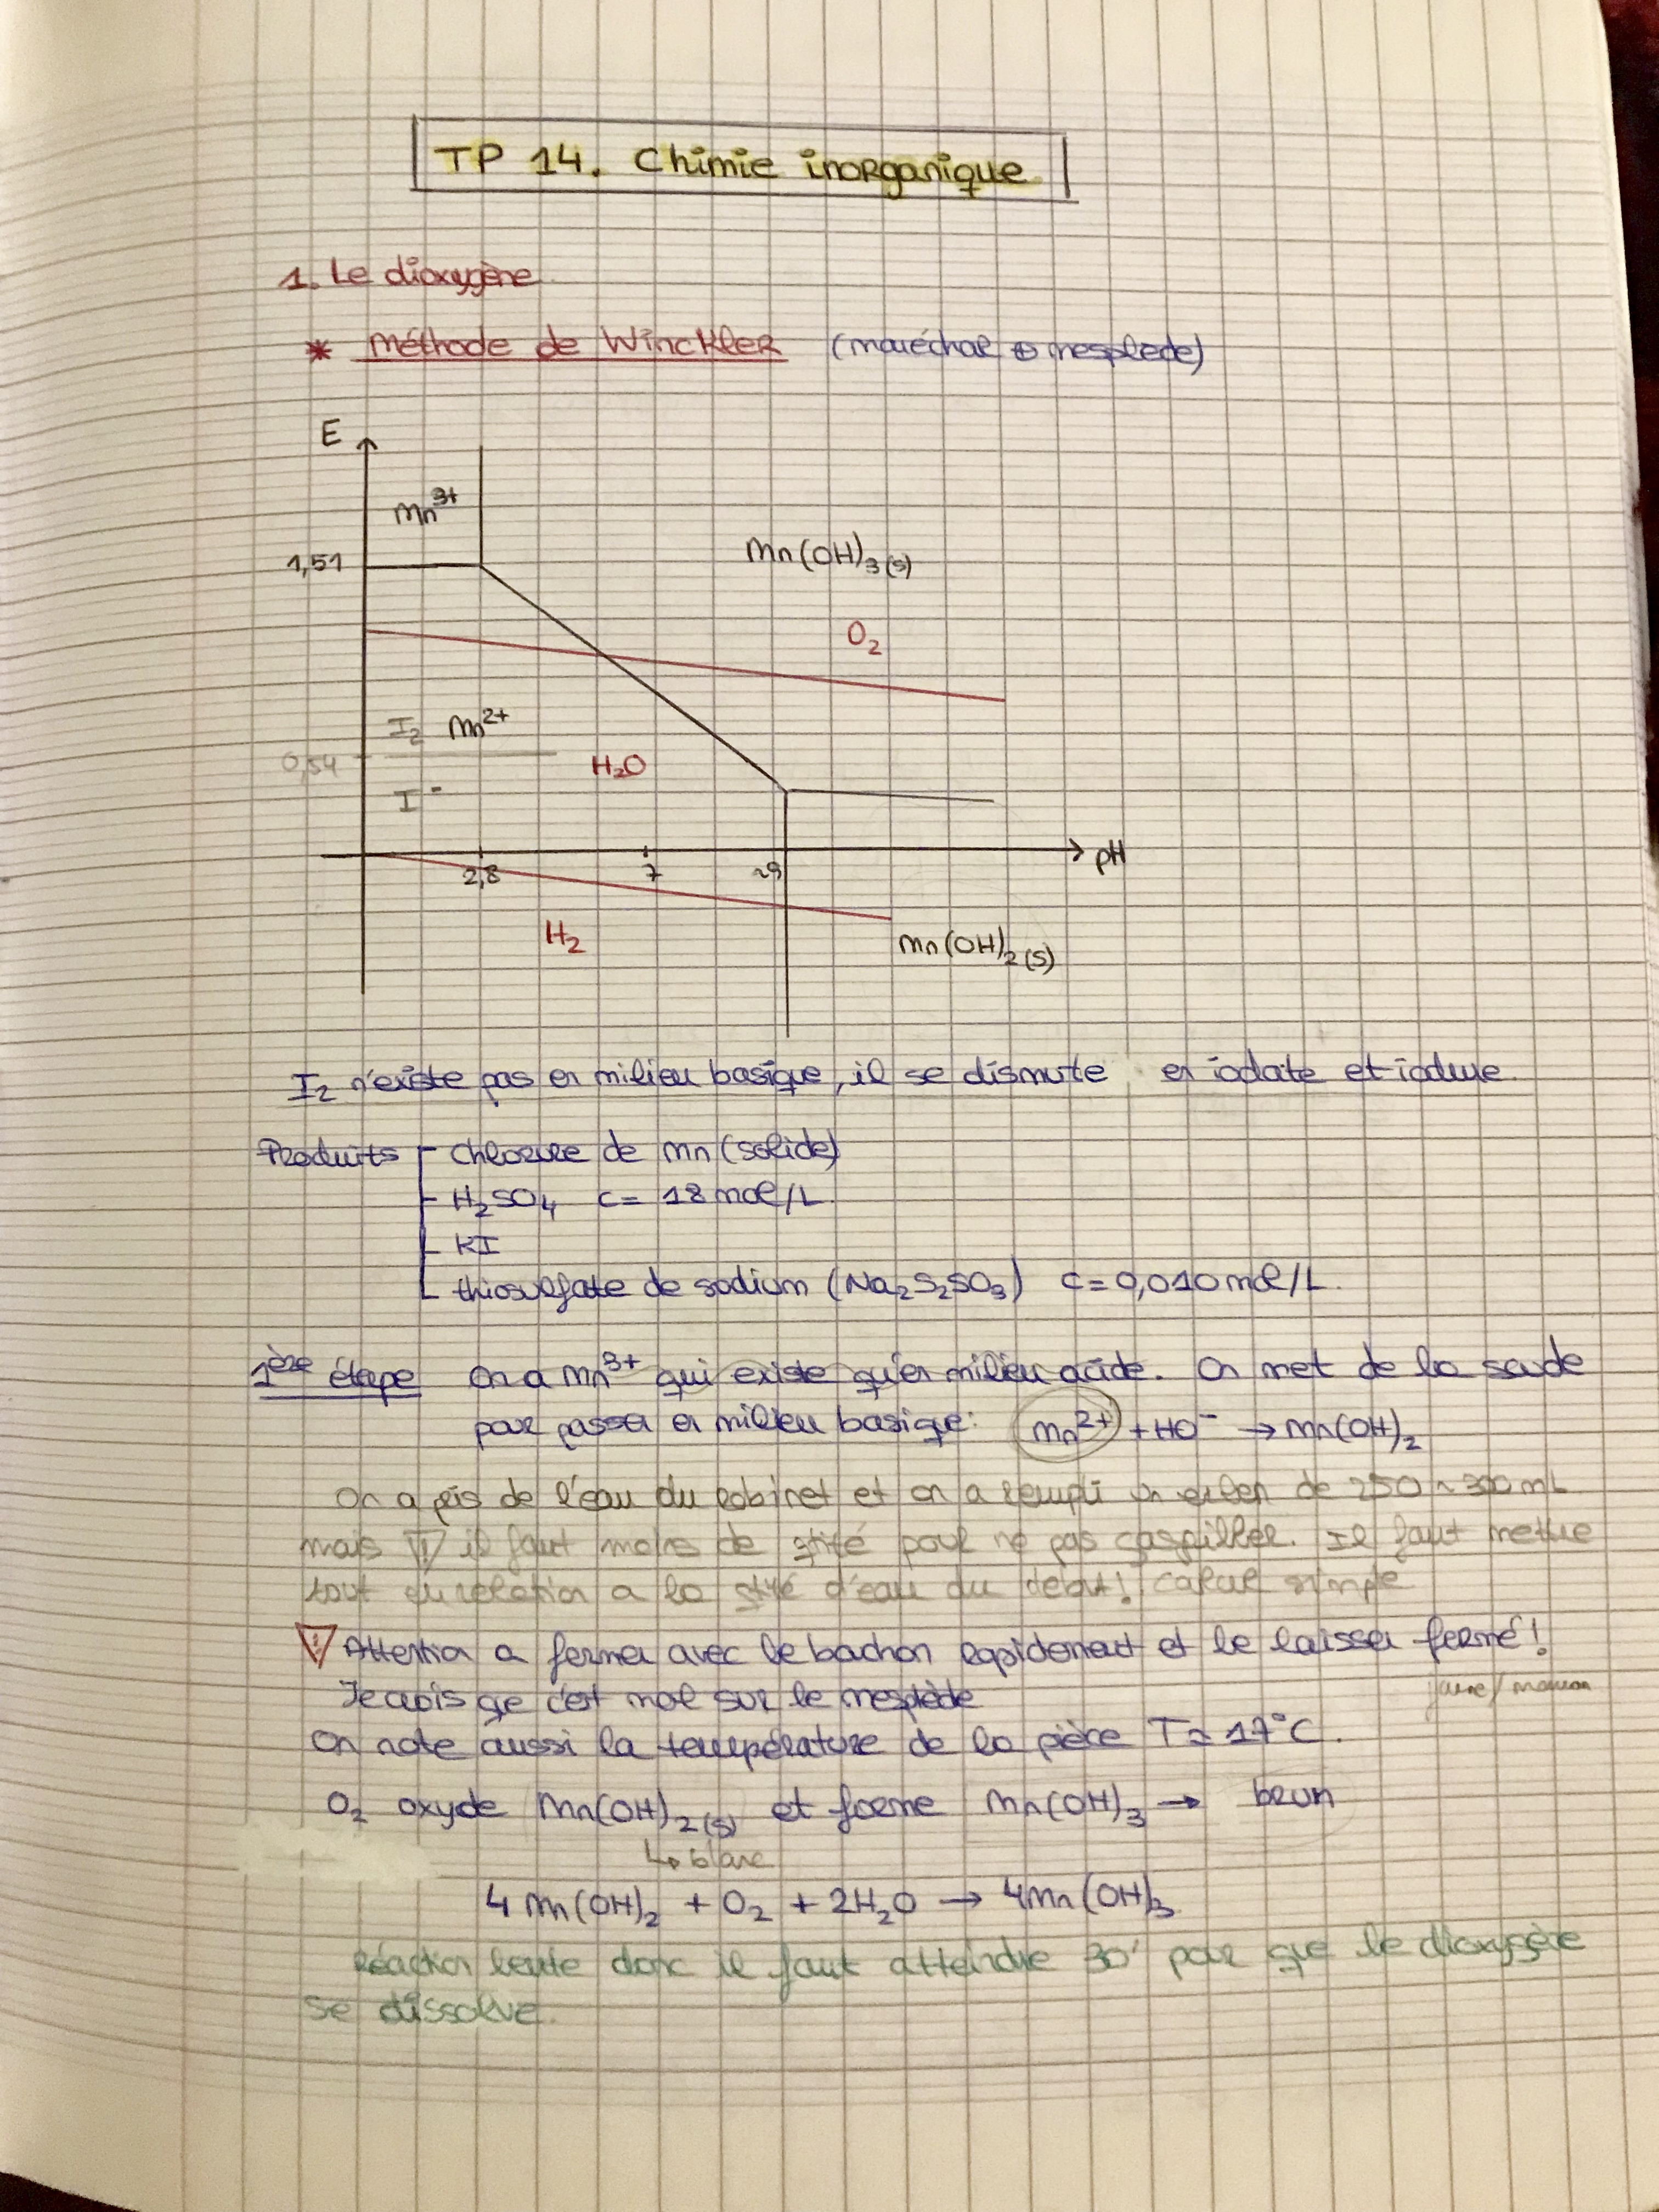 TP 14. Chimie inorganique
1. Le dioxygène
* Méthode de Winckler (maréchal ⊕ mesplède)
E
Mn³⁺
1,51
Mn(OH)₃(s)
O₂
I₂ Mn²⁺
0,54
H₂O
I⁻
2,8 7 ~9 pH
H₂
Mn(OH)₂(s)
I₂ n'existe pas en milieu basique, il se dismute en iodate et iodure
Produits - Chlorure de Mn (solide)
- H₂SO₄ C = 18 mol/L.
- KI
- thiosulfate de sodium (Na₂S₂SO₃) C = 0,010 mol/L.
1ère étape On a Mn³⁺ qui existe qu'en milieu acide. On met de la soude
pour passer en milieu basique: Mn²⁺ + HO⁻ → Mn(OH)₂
On a pris de l'eau du robinet et on a rempli un erlen de 250 ~ 300 mL
mais il faut moins de qtité pour ne pas gaspiller. Il faut mettre
tout en relation a la qtité d'eau du début! Calcul simple
Attention a fermer avec le bouchon rapidement et le laisser fermé!
Je crois que c'est mal sur le mesplède
On note aussi la température de la pièce T = 17°C.
O₂ oxyde Mn(OH)₂(s) et forme Mn(OH)₃ → brun
↳ blanc
4 Mn(OH)₂ + O₂ + 2H₂O → 4Mn(OH)₃
Réaction lente donc il faut atteindre 30' pour que le dioxygène
se dissolve.